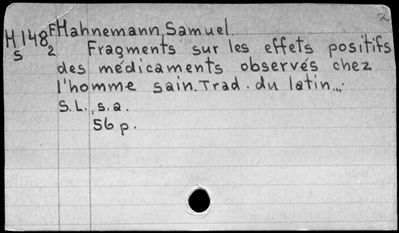 H148F Hahnemann, Samuel.
S 2 Fragments sur les effets positifs
des médicaments observés chez
l'homme sain. Trad. du latin...
S.L., s.a.
56 p.